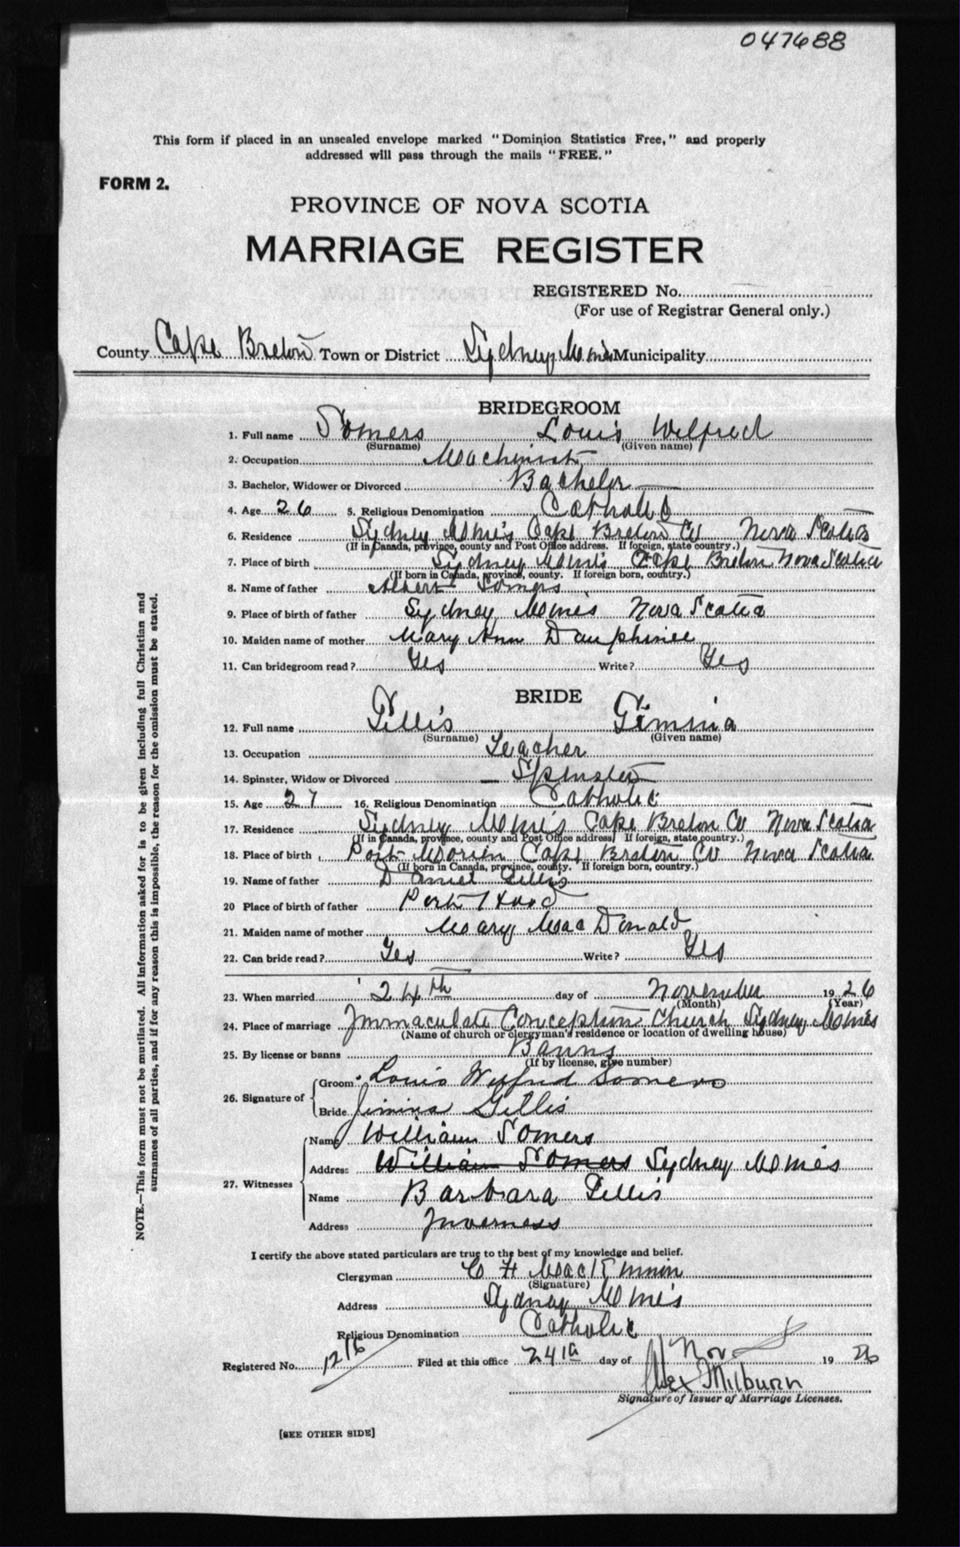 047688
This form if placed in an unsealed envelope marked "Dominion Statistics Free," and properly
addressed will pass through the mails "FREE."
FORM 2.
PROVINCE OF NOVA SCOTIA
MARRIAGE REGISTER
REGISTERED No.
(For use of Registrar General only.)
County Cape Breton Town or District Sydney Mines Municipality
BRIDEGROOM
1. Full name Somers Louis Wilfred
(Surname) (Given name)
2. Occupation Machinist
3. Bachelor, Widower or Divorced Bachelor
4. Age 26 5. Religious Denomination Catholic
6. Residence Sydney Mines Cape Breton Co Nova Scotia
(If in Canada, province, county and Post Office address. If foreign, state country.)
7. Place of birth Sydney Mines Cape Breton Nova Scotia
(If born in Canada, province, county. If foreign born, country.)
8. Name of father Albert Somers
9. Place of birth of father Sydney Mines Nova Scotia
10. Maiden name of mother Mary Ann Dauphinee
11. Can bridegroom read? Yes Write? Yes
BRIDE
12. Full name Gillis Gimnia
(Surname) (Given name)
13. Occupation Teacher
14. Spinster, Widow or Divorced Spinster
15. Age 27 16. Religious Denomination Catholic
17. Residence Sydney Mines Cape Breton Co Nova Scotia
(If in Canada, province, county and Post Office address. If foreign, state country.)
18. Place of birth Port Morien Cape Breton Co Nova Scotia
(If born in Canada, province, county. If foreign born, country.)
19. Name of father Daniel Gillis
20 Place of birth of father Port Hood
21. Maiden name of mother Mary MacDonald
22. Can bride read? Yes Write? Yes
23. When married 24th day of November 1926
(Month) (Year)
24. Place of marriage Immaculate Conception Church Sydney Mines
(Name of church or clergyman's residence or location of dwelling house)
25. By license or banns Banns
(If by license, give number)
26. Signature of Groom Louis Wilfred Somers
Bride Jimina Gillis
27. Witnesses Name William Somers
Address William Somers Sydney Mines
Name Barbara Gillis
Address Inverness
I certify the above stated particulars are true to the best of my knowledge and belief.
Clergyman C F MacKinnon
(Signature)
Address Sydney Mines
Religious Denomination Catholic
Registered No. 1216 Filed at this office 24 day of Nov 1926
Alex Milburn
Signature of Issuer of Marriage Licenses.
[SEE OTHER SIDE]
NOTE.—This form must not be mutilated. All information asked for is to be given including full Christian and
surnames of all parties, and if for any reason this is impossible, the reason for the omission must be stated.